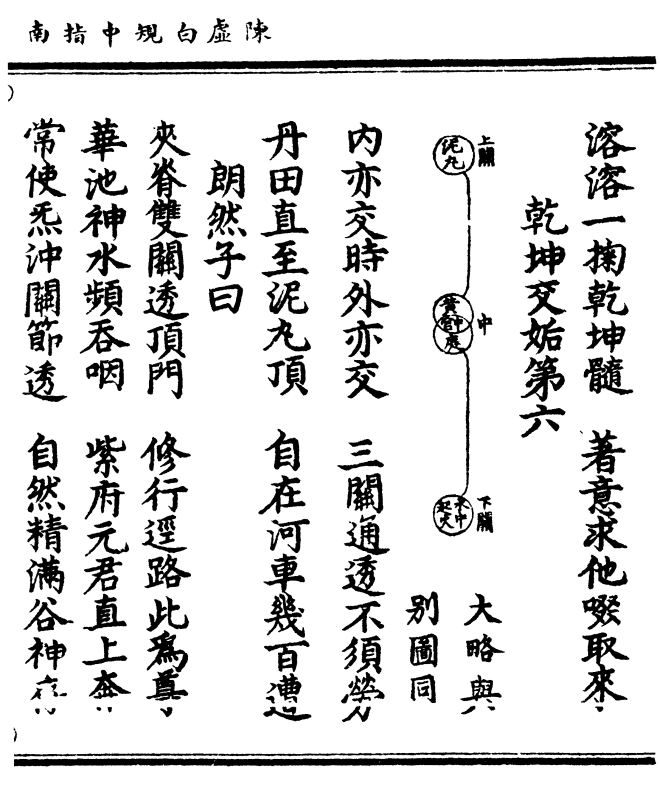 陳虛白規中指南
溶溶一掬乾坤髓　著意求他啜取來
乾坤交姤第六
上關
泥丸
中
黃
中宮
庭
下關
水中起火
大略與
別圖同
內亦交時外亦交　三關通透不須勞
丹田直至泥丸頂　自在河車幾百遭
朗然子曰
夾脊雙關透頂門　修行逕路此爲尊
華池神水頻吞咽　紫府元君直上奔
常使炁沖關節透　自然精滿谷神存